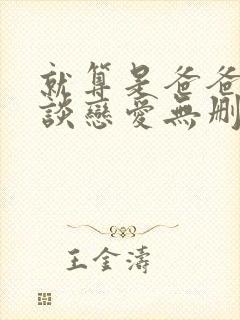 就算是爸爸
談戀愛無刪
王金濤